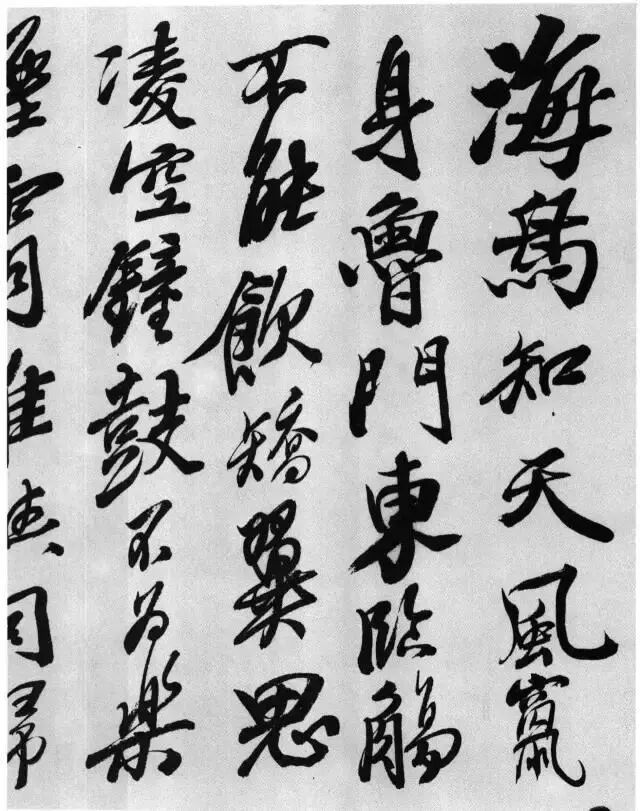 海鳥知天風竄
身魯門東臨觴
不能飲矯翼思
凌空鐘鼓不為樂
煙霜誰與同歸